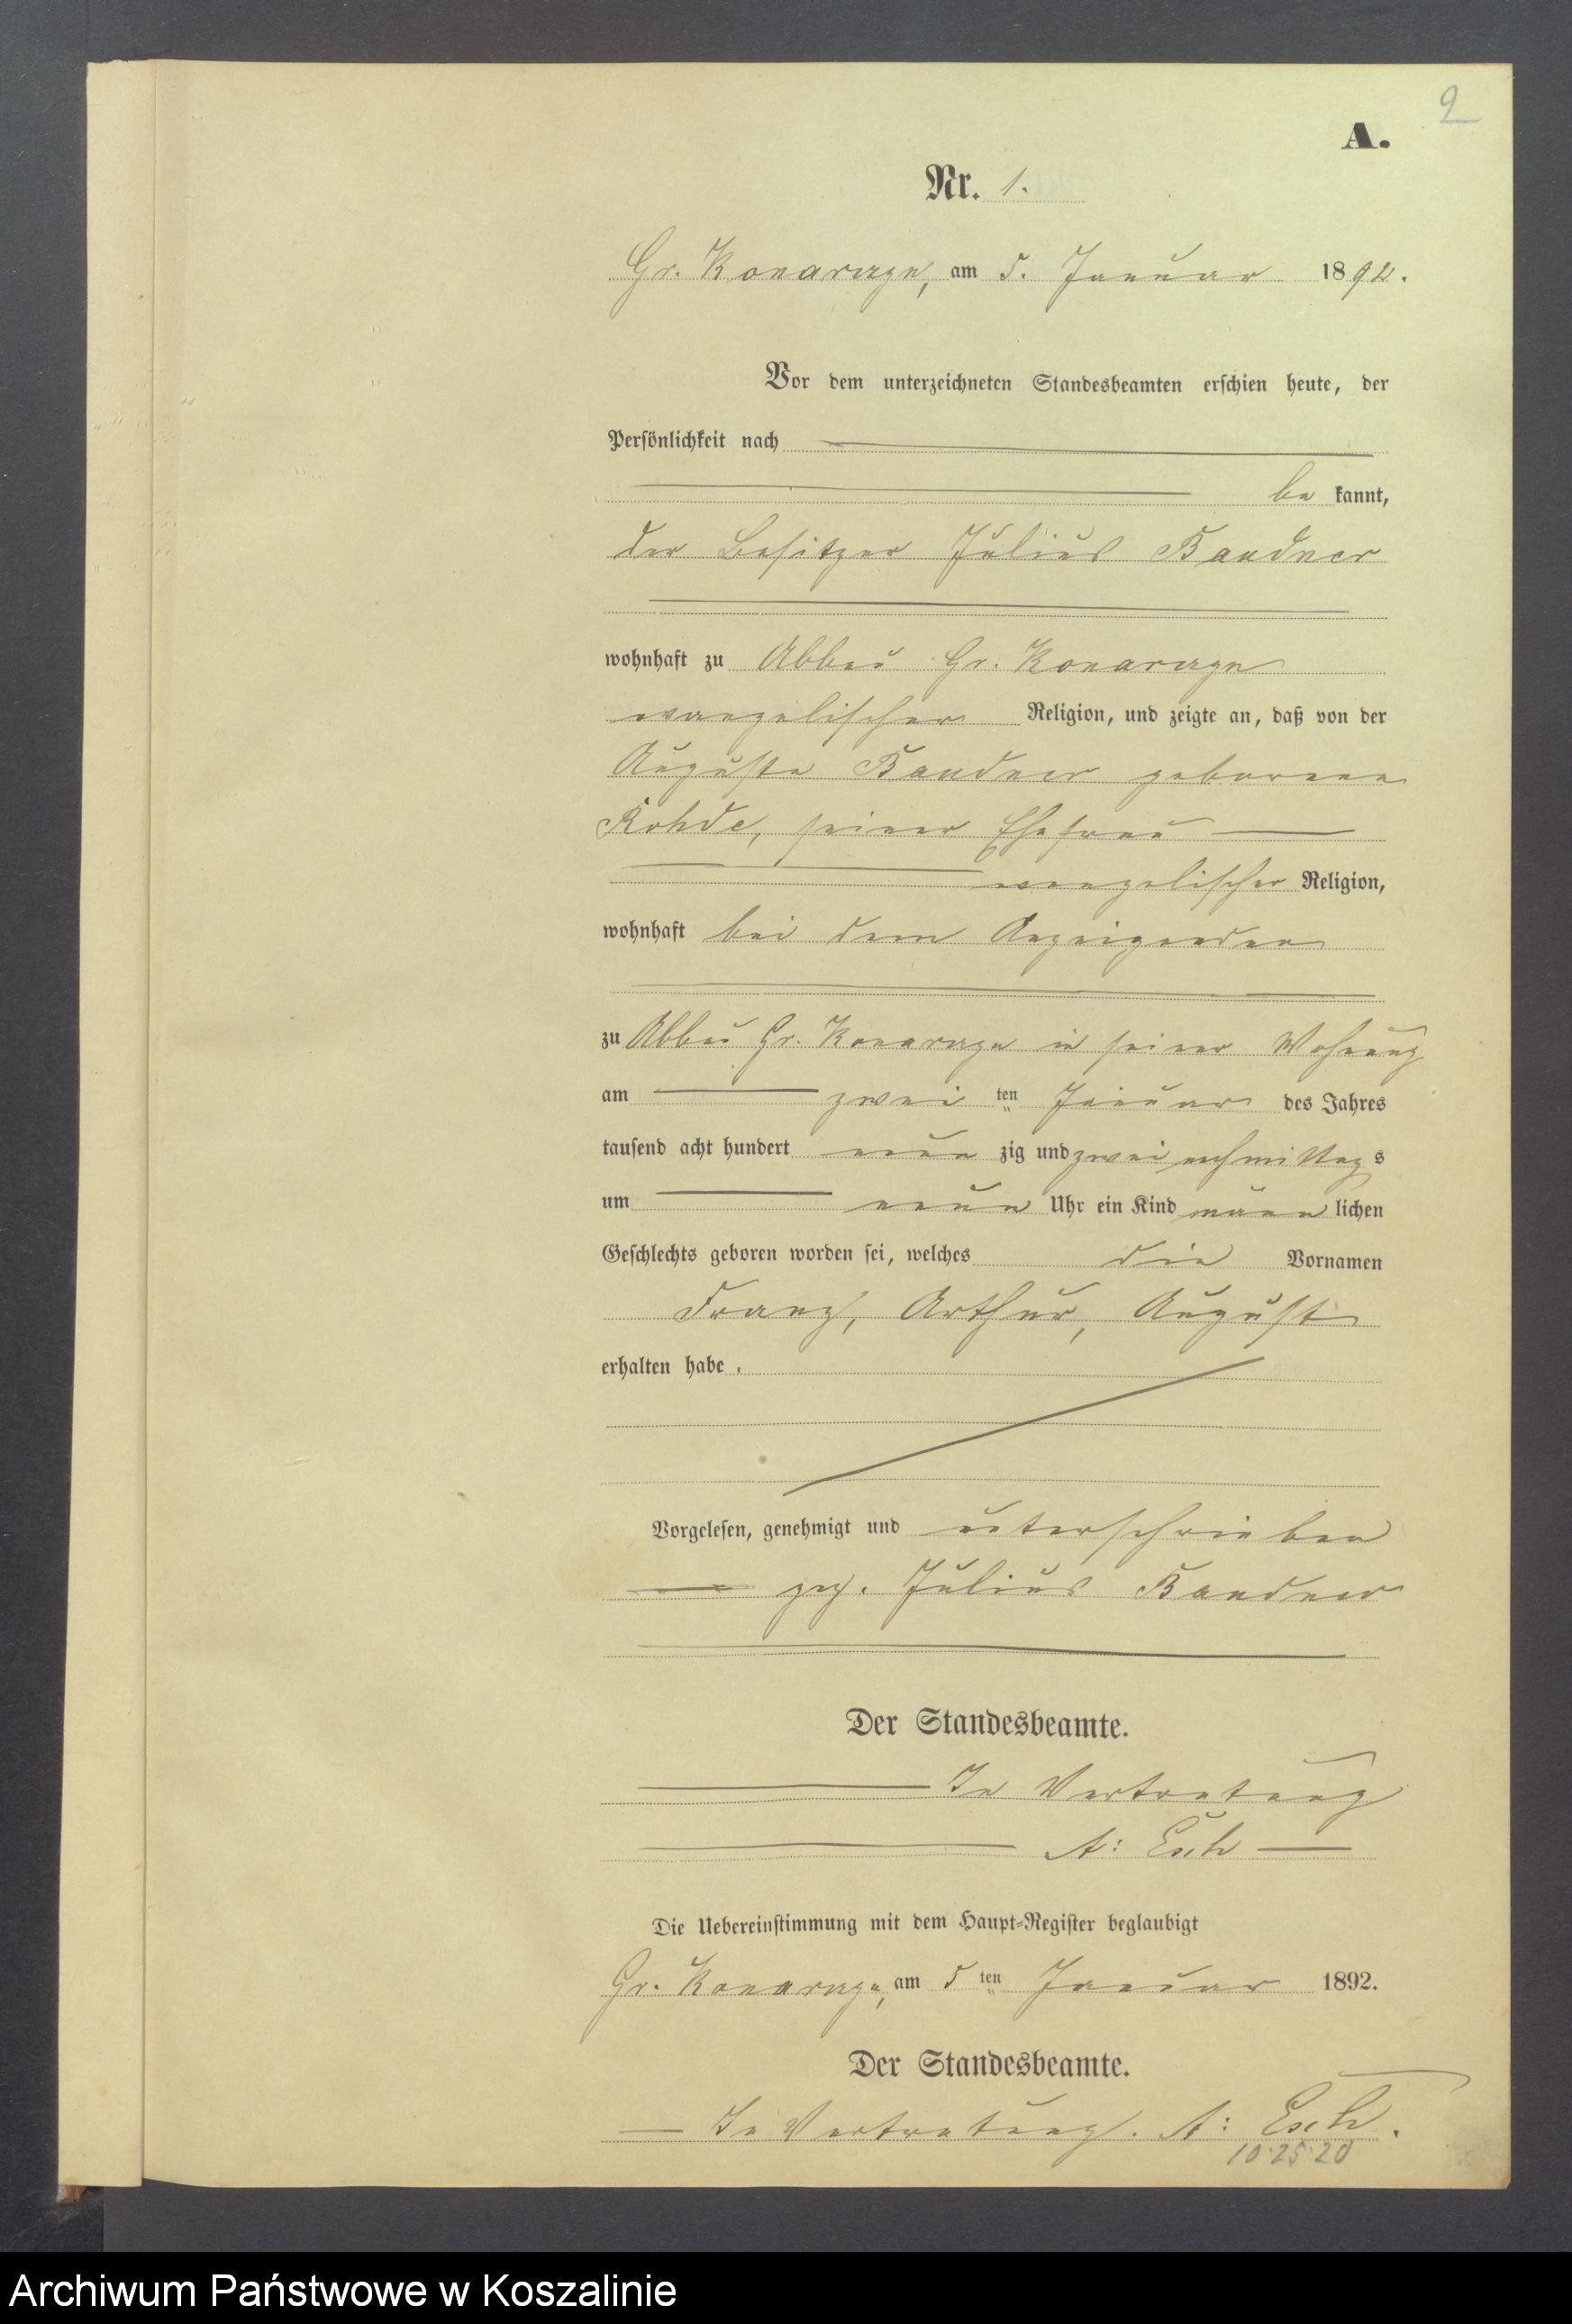 2
A.
Nr. 1.
Gr. Konarzyn, am 5. Januar 1892.
Vor dem unterzeichneten Standesbeamten erschien heute, der
Persönlichkeit nach
be kannt,
der Besitzer Julius Bandner
wohnhaft zu Abbau Gr. Konarzyn
evangelischer Religion, und zeigte an, daß von der
Auguste Bandner geborenen
Rohde, seiner Ehefrau
evangelischer Religion,
wohnhaft bei dem Anzeigenden
zu Abbau Gr. Konarzyn in seiner Wohnung
am zwei ten Januar des Jahres
tausend acht hundert neun zig und zwei nachmittags
um neun Uhr ein Kind männ lichen
Geschlechts geboren worden sei, welches die Vornamen
Franz, Arthur, August
erhalten habe.
Vorgelesen, genehmigt und unterschrieben
gez. Julius Bandner
Der Standesbeamte.
In Vertretung
A: Esch
Die Uebereinstimmung mit dem Haupt-Register beglaubigt
Gr. Konarzyn, am 5 ten Januar 1892.
Der Standesbeamte.
In Vertretung. A: Esch.
10·25·20
Archiwum Państwowe w Koszalinie